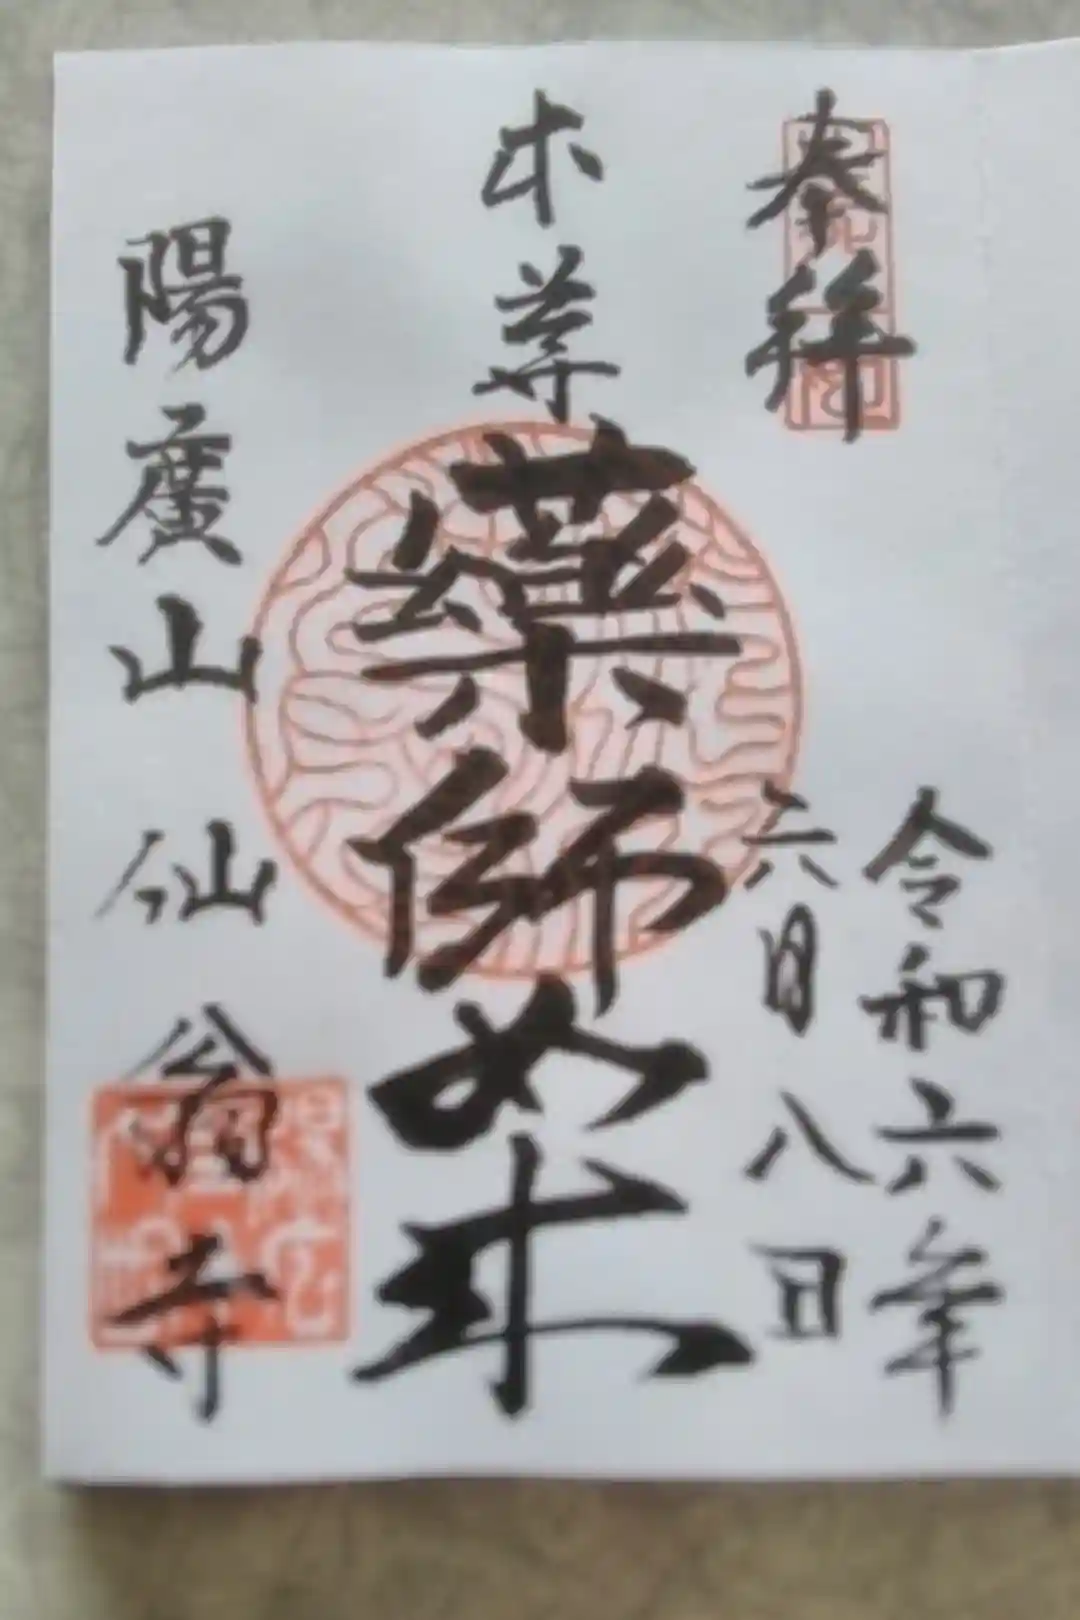 奉拝
令和六年
六月八日
本尊
藥師如来
陽廣山
仙翁寺